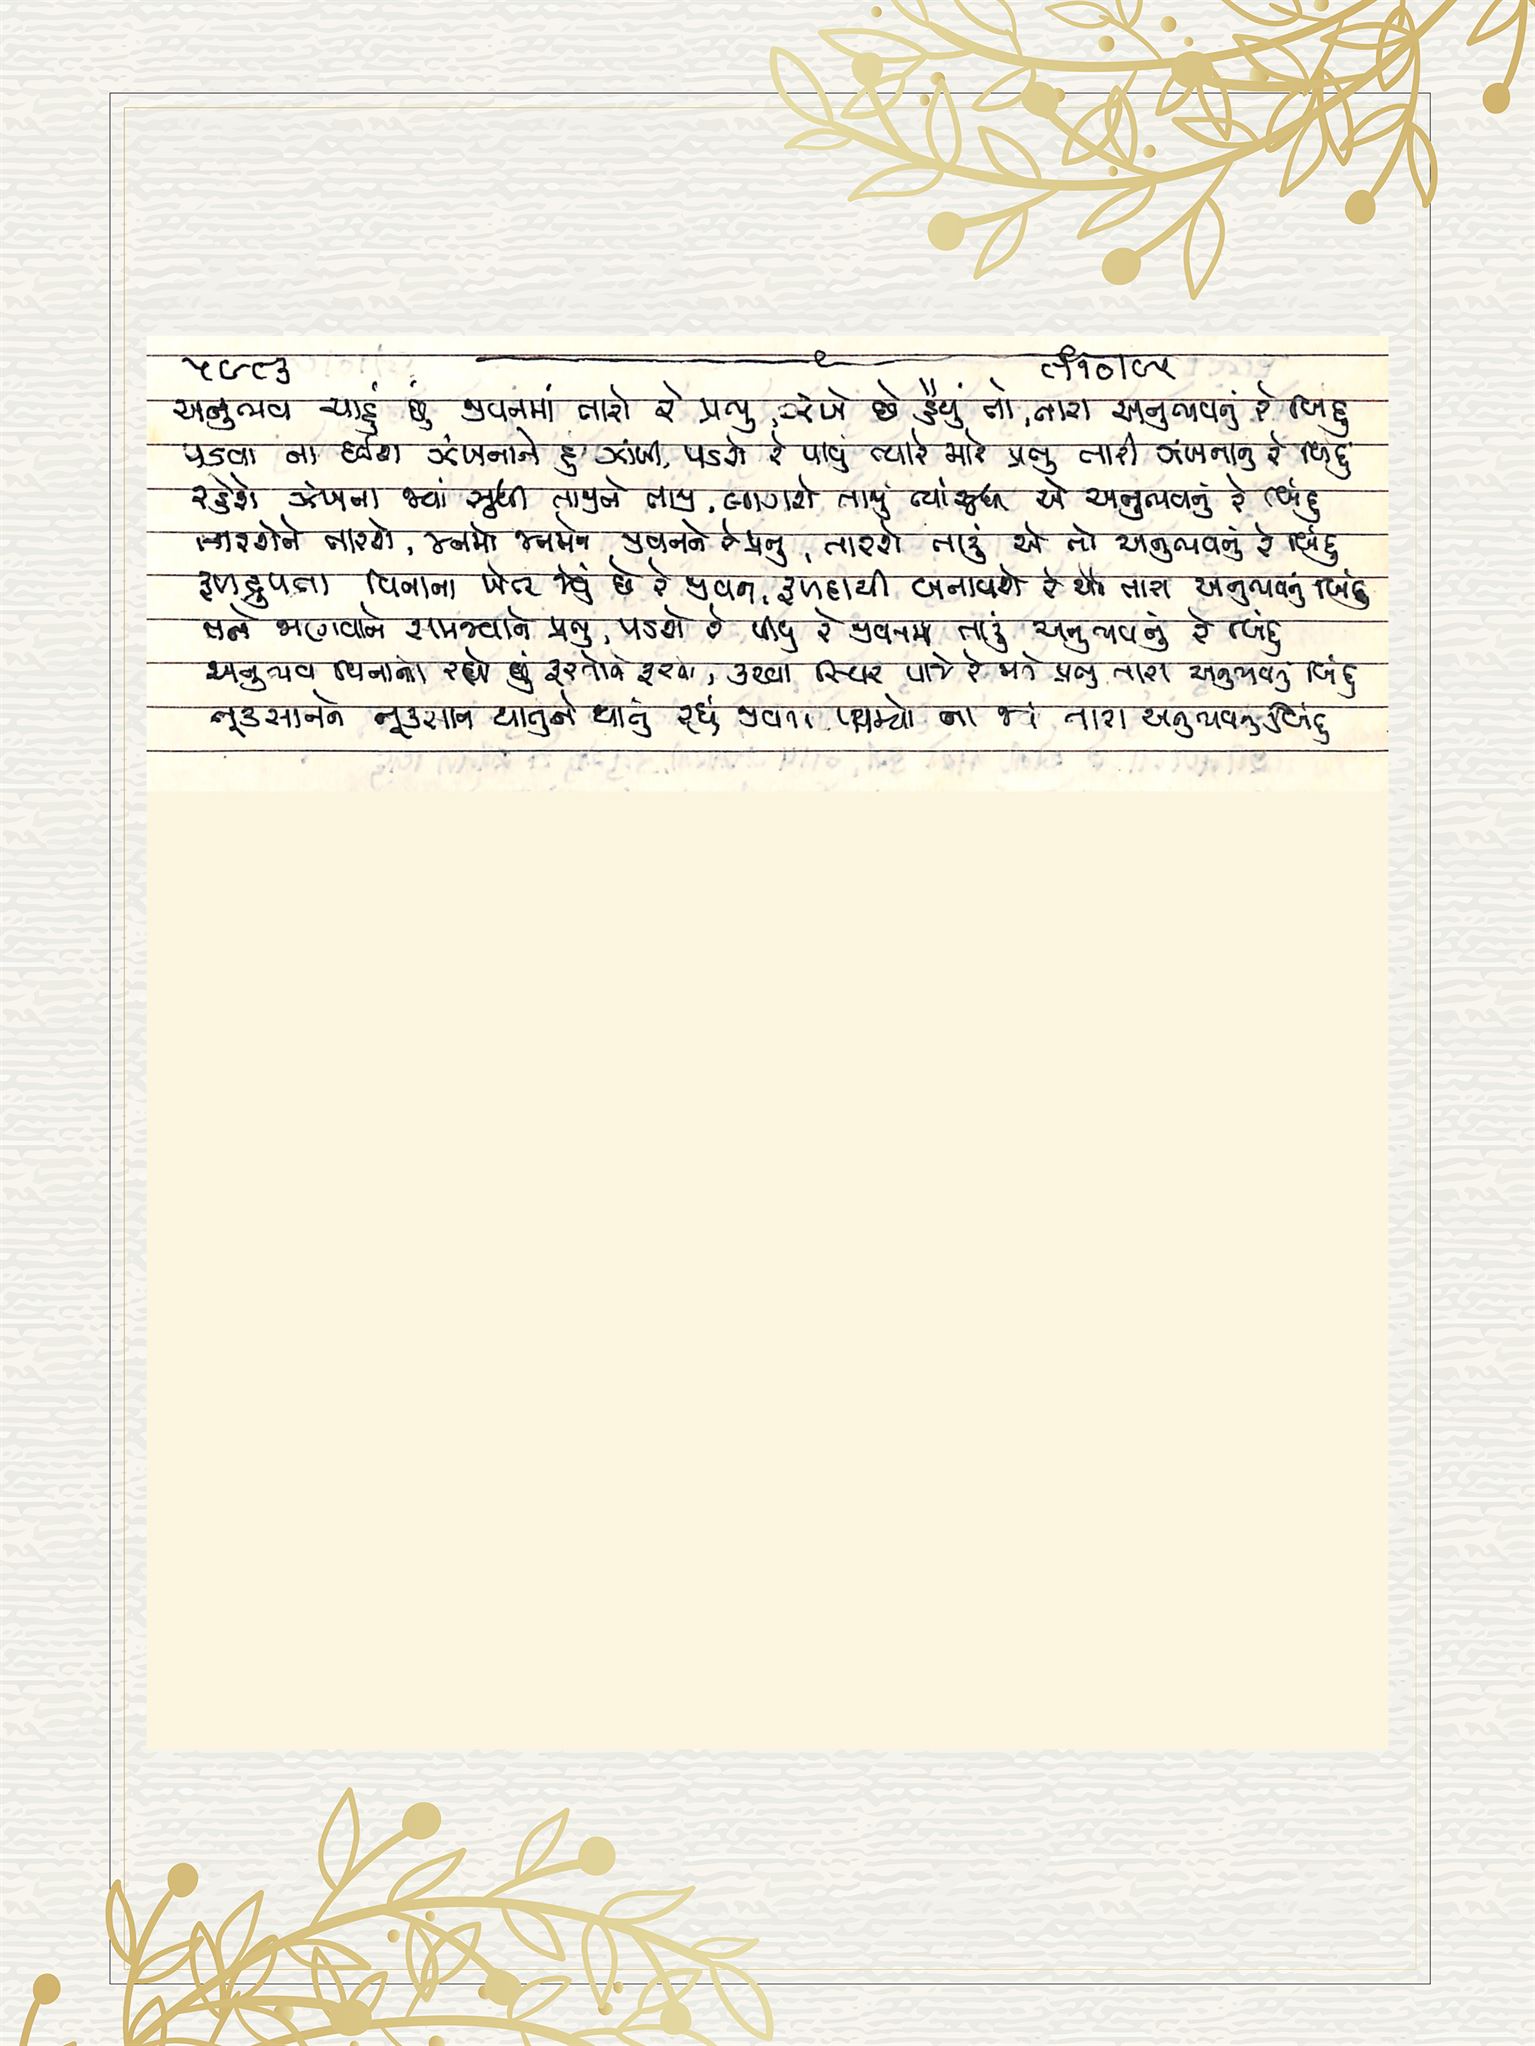 અનુભવ ચાહું છું જીવનમાં તારો રે પ્રભુ, ઝંખે છે હૈયું તો, તારા અનુભવનું રે બિંદુ
પડવા ના દઈશ ઝંખનાને હું ઝાંખી, પડશે રે પીવું ત્યારે મારે પ્રભુ તારી ઝંખનાનું રે બિંદુ
રહેશે ઝંખના જ્યાં સુધી તાજીને તાજી, લાગશે તાજું ત્યાં સુધી એ અનુભવનું રે બિંદુ
તારશેને તારશે, જનમો જનમના જીવનને રે પ્રભુ, તારશે તારું એ તો અનુભવનું રે બિંદુ
ફળદ્રુપતા વિનાના ખેતર જેવું છે રે જીવન, ફળદાયી બનાવશે રે એને તારા અનુભવનું બિંદુ
મને ભગવાને સમજવાને પ્રભુ, પડશે રે પીવું રે જીવનમાં તારું અનુભવનું રે બિંદુ
અનુભવ વિનાનો રહ્યો છું ફરતોને ફરતો, કરવા સ્થિર પાજે રે મને પ્રભુ તારા અનુભવનું બિંદુ
નુકસાનને નુકસાન થાતુંને થાતું રહ્યું જીવનમાં, પામ્યો ના જ્યાં તારા અનુભવનું બિંદુ